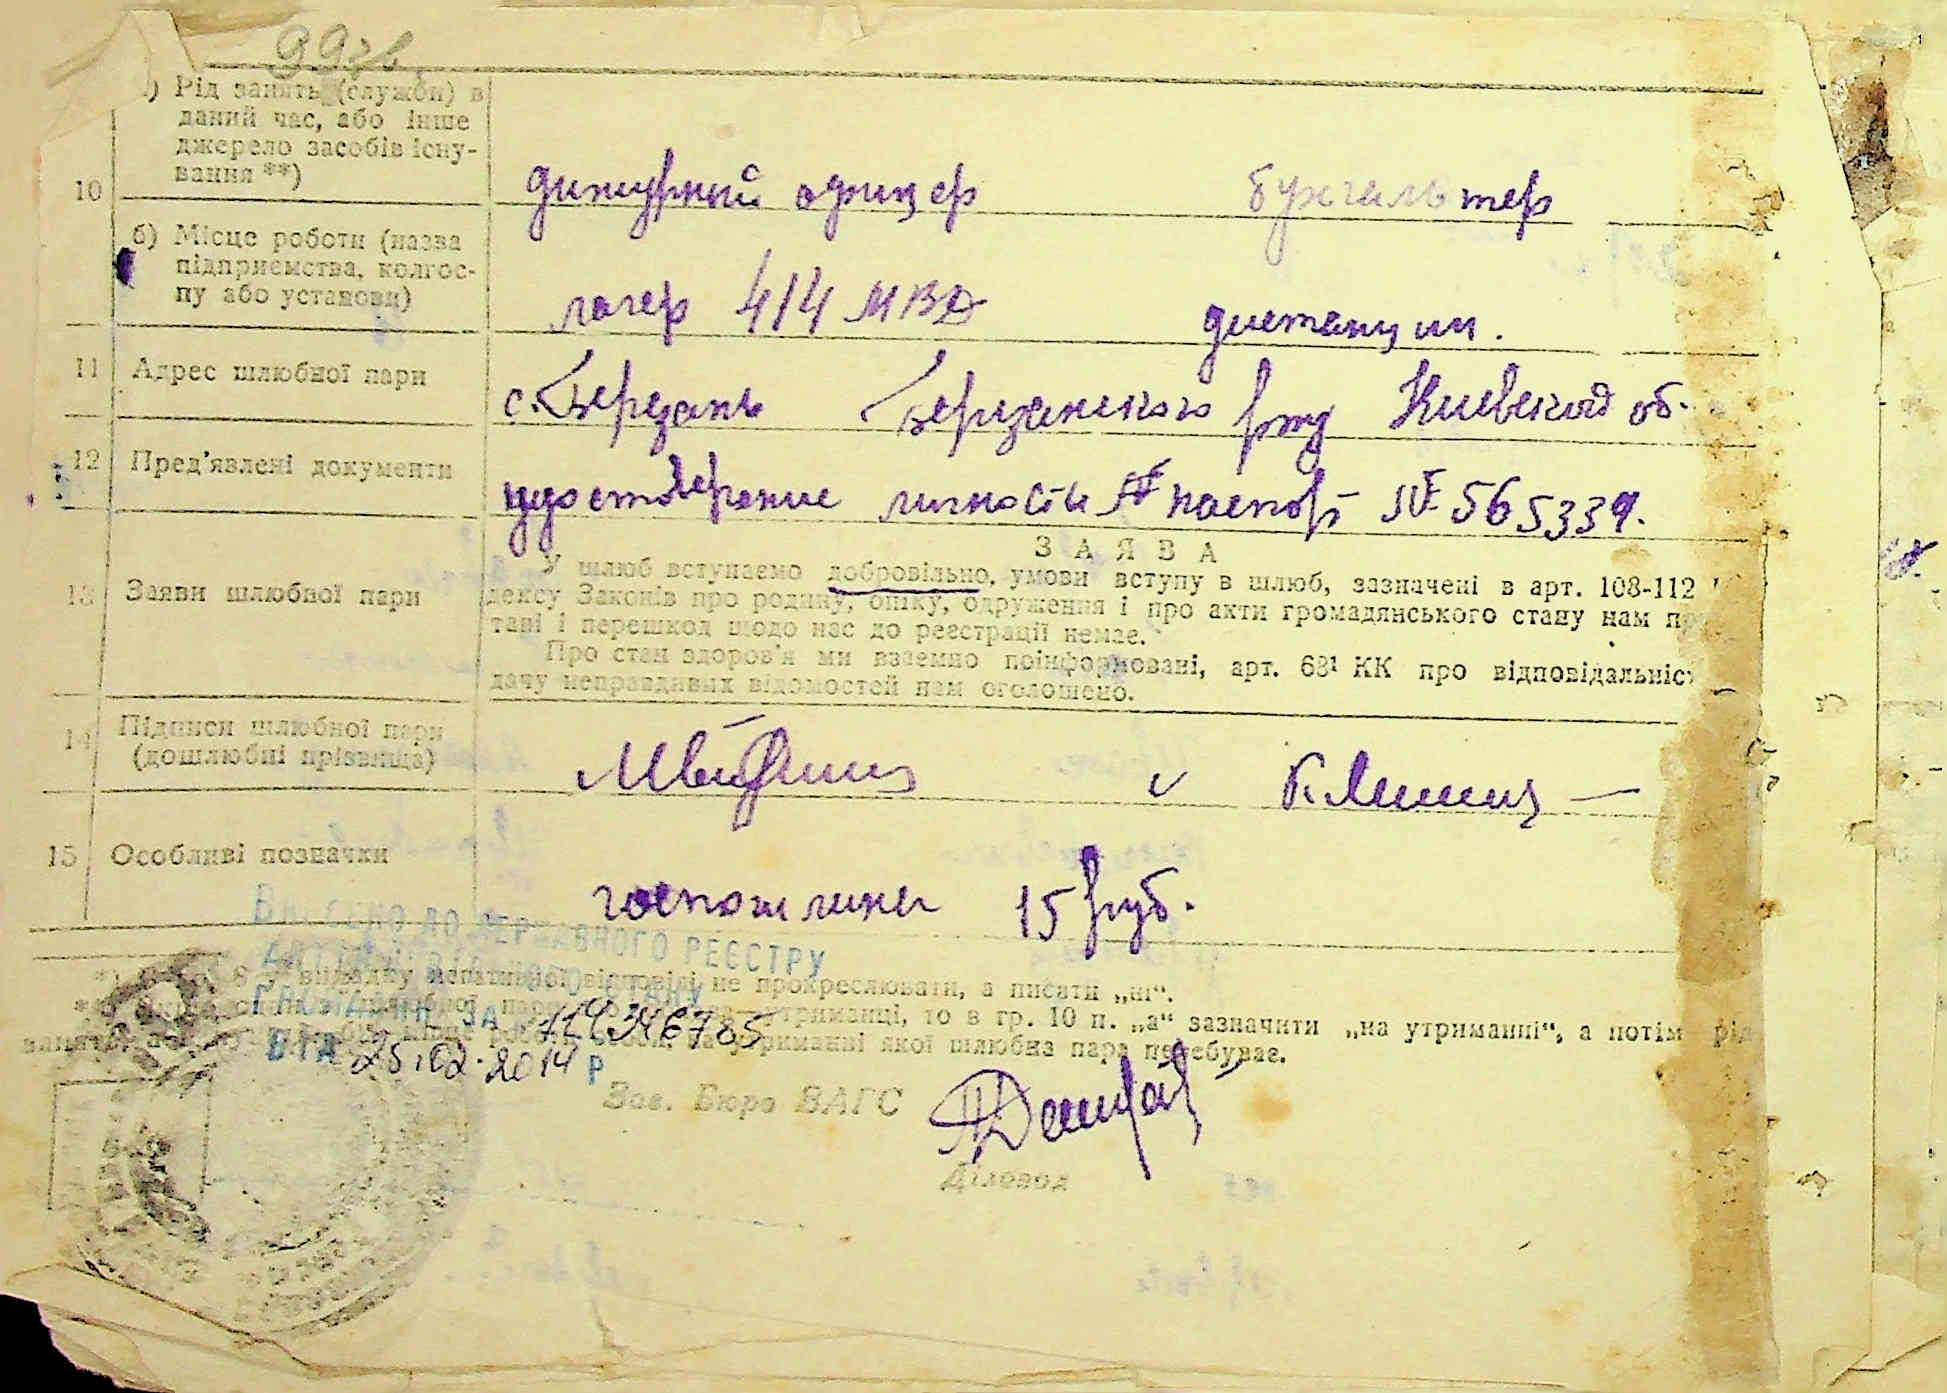 99
а) Рід занять (служби) в
даний час, або інше
джерело засобів існу-
вання **)
10
дижурный офицер бухгальтер
б) Місце роботи (назва
підприємства, колгос-
пу або установи)
лагер 414 МВД дистанции.
11 Адрес шлюбної пари
с. Березань Березанского р-ну Киевской об.
12 Пред'явлені документи
удостоверение личности № паспорт № 565339.
13 Заяви шлюбної пари
ЗАЯВА
У шлюб вступаемо добровільно, умови вступу в шлюб, зазначені в арт. 108-112
дексу Законів про родину, опіку, одруження і про акти громадянського стану нам
тані і перешкод щодо нас до реєстрації немає.
Про стан здоров'я ми взаємно поінформовані, арт. 68¹ КК про відповідальніс
дачу неправдивих відомостей нам оголошено.
14 Підписи шлюбної пари
(дошлюбні прізвища)
15 Особливі позначки
госпошлины 15 руб.
ВНЕСЕНО ДО ДЕРЖАВНОГО РЕЄСТРУ
АКТІВ ЦИВІЛЬНОГО СТАНУ
ГРОМАДЯН ЗА
ВІД 25.02.2014 Р
8 у випадку негативної відповіді не прокреслювати, а писати „ні“.
утриманці, то в гр. 10 п. „а“ зазначити „на утриманні“, а потім рід
на утриманні якої шлюбна пара перебуває.
Зав. Бюро ЗАГС
Діловод